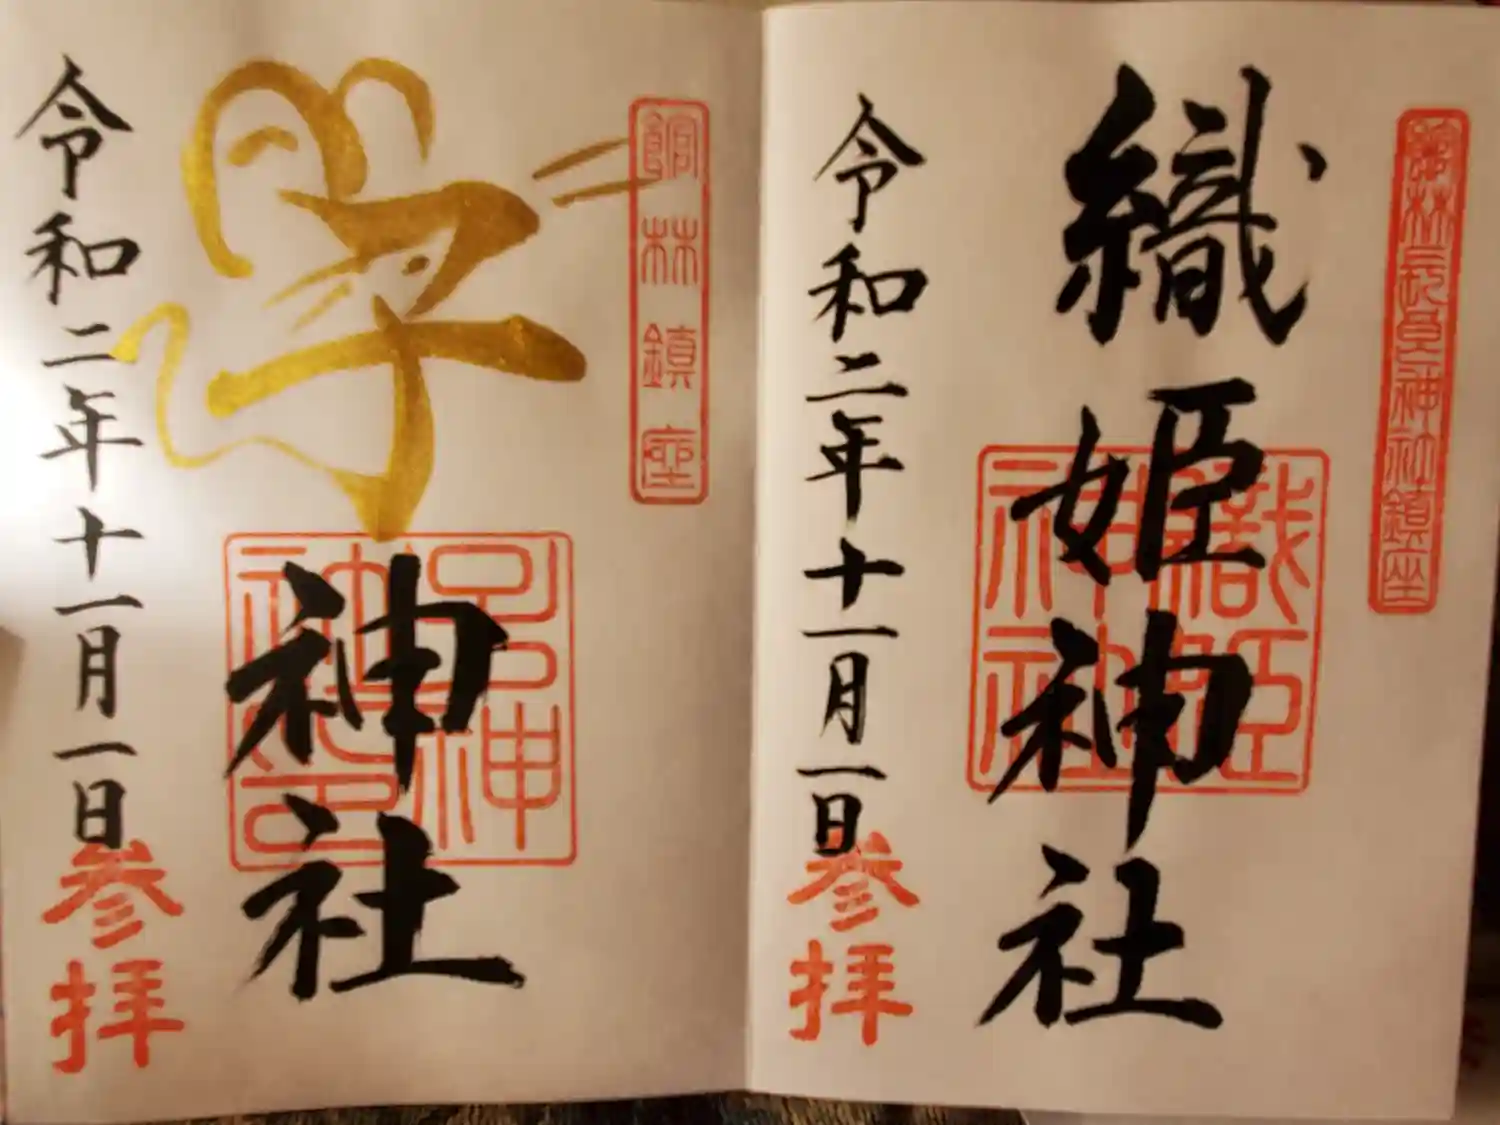 館林長良神社鎮座
織姫神社
織姫神社
令和二年十一月一日
参拝
館林鎮座
子神社
令和二年十一月一日
参拝